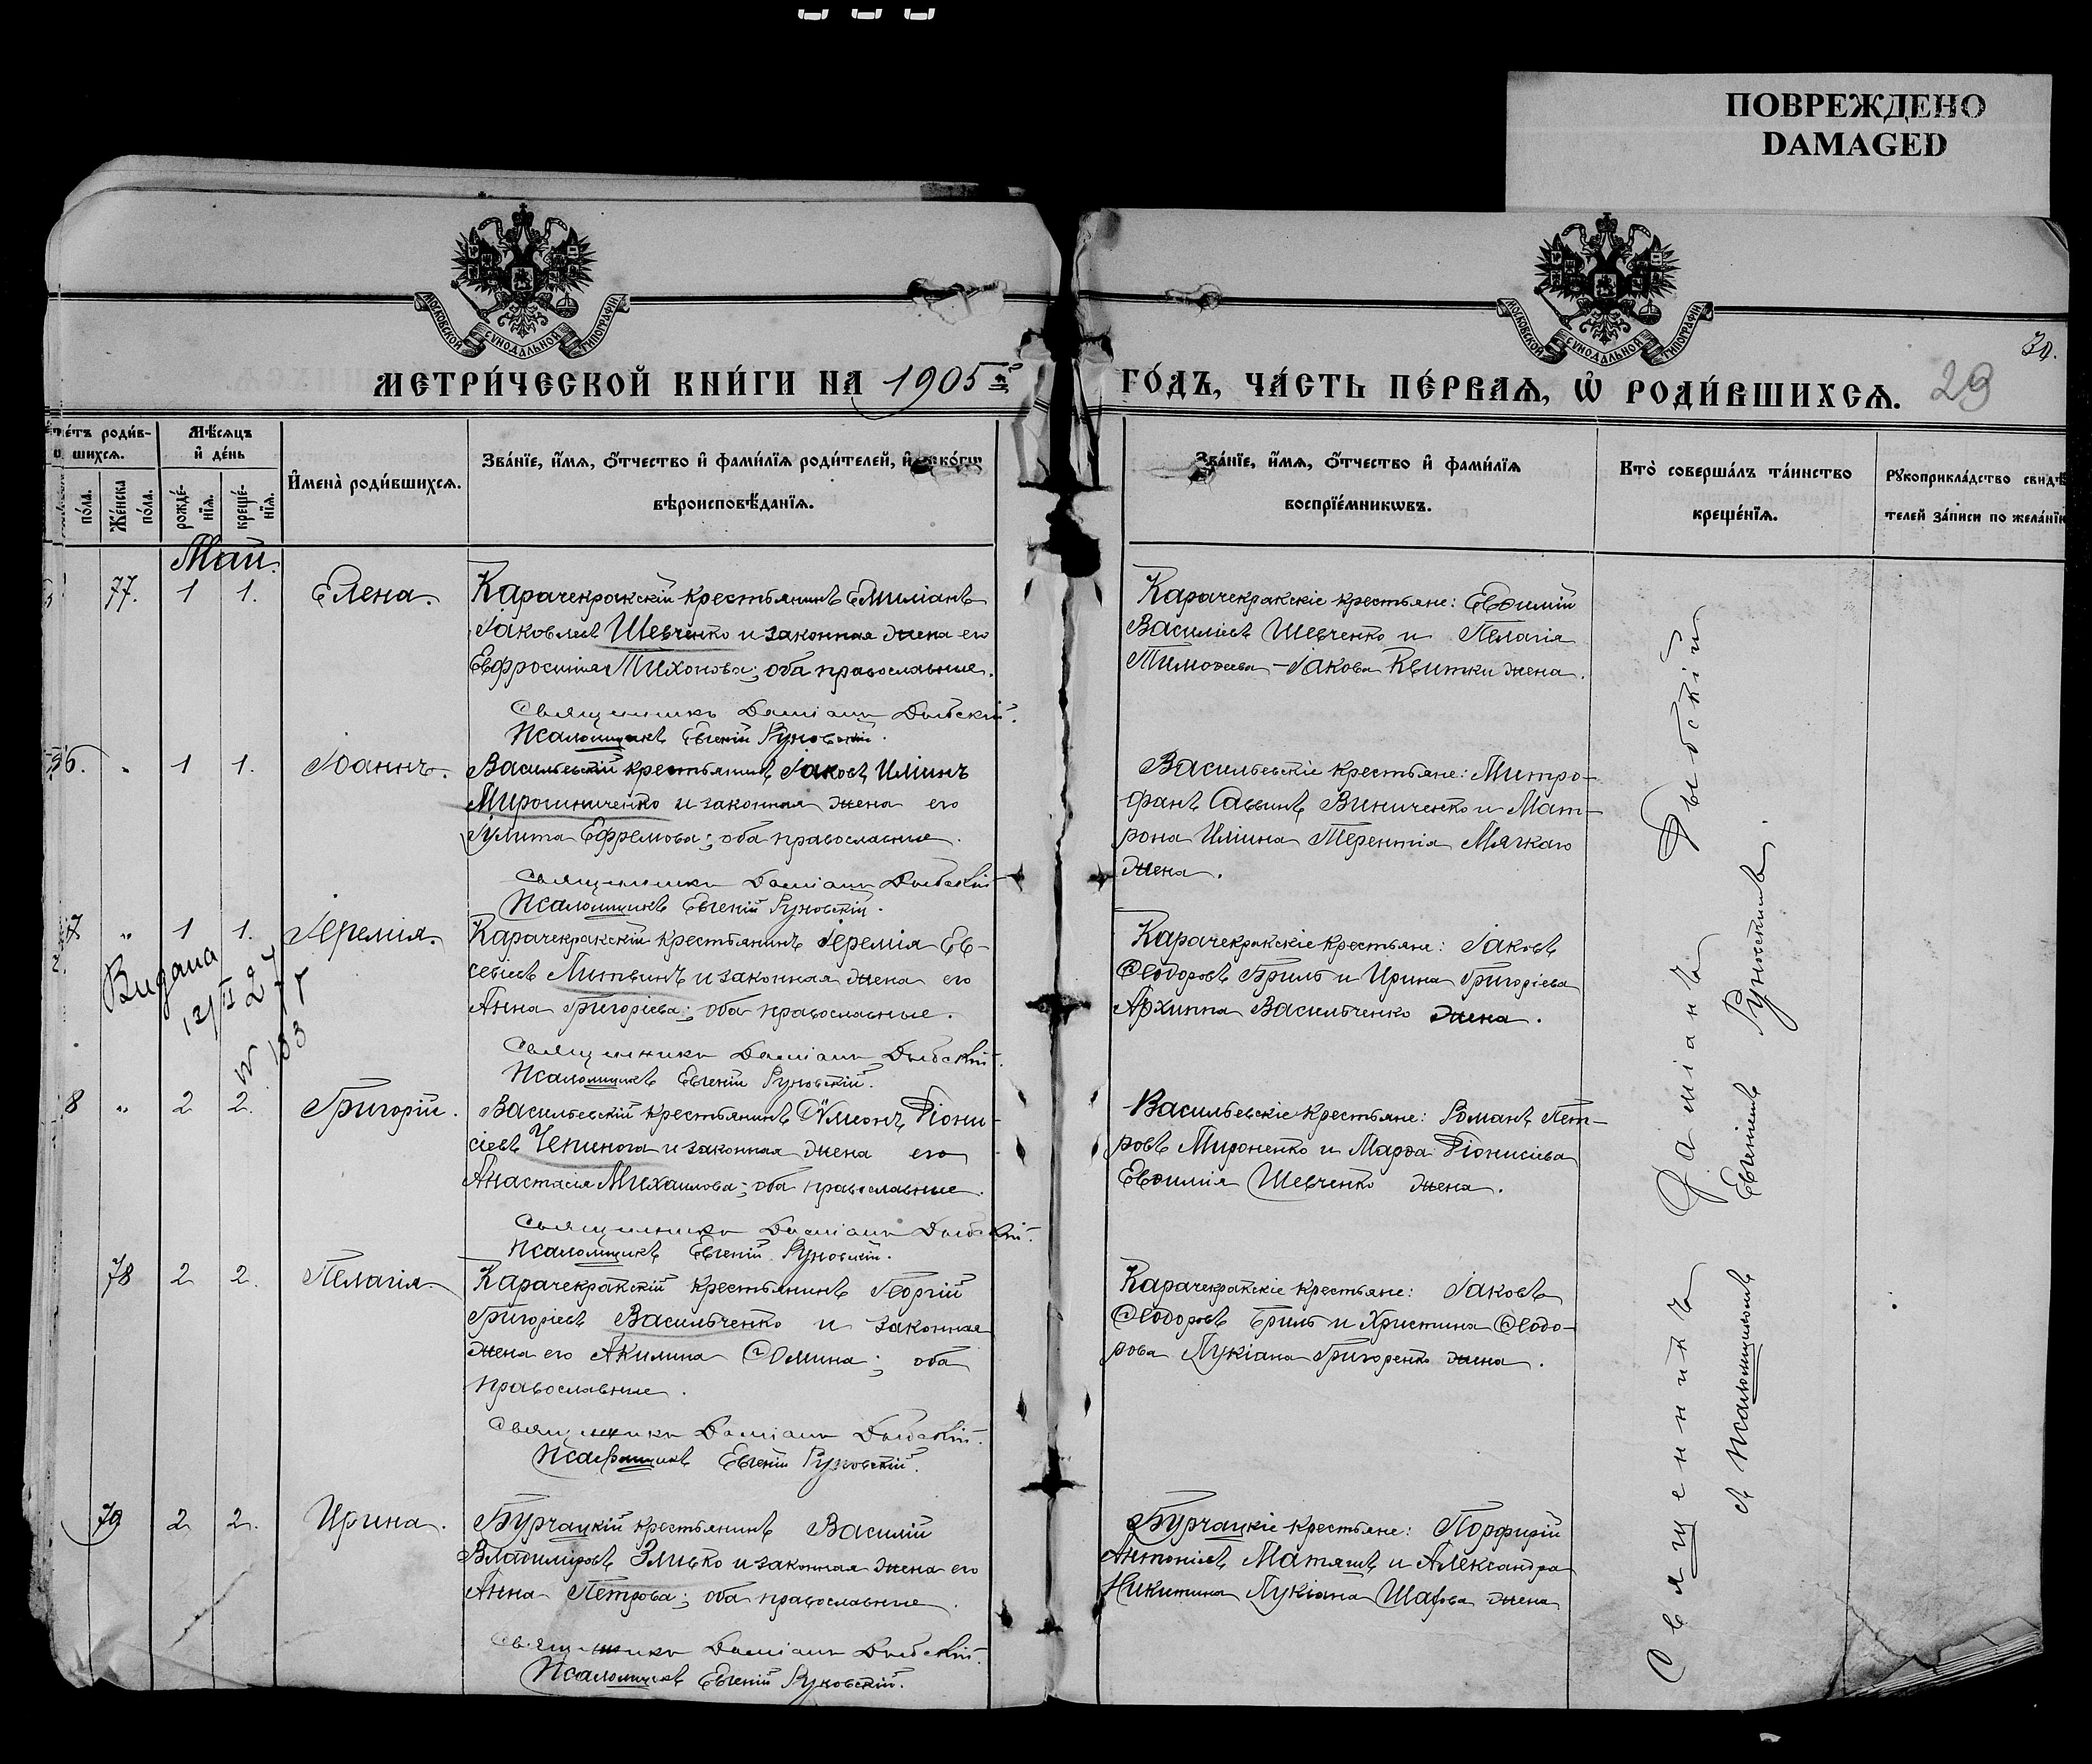 ПОВРЕЖДЕНО
DAMAGED
МОСКОВСКОЙ СѴНОДАЛЬНОЙ ТИПОГРАФІИ
МОСКОВСКОЙ СѴНОДАЛЬНОЙ ТИПОГРАФІИ
30.
МЕТРИ́ЧЕСКОЙ КНИ́ГИ НА 1905й
ГО́ДЪ, ЧА́СТЬ ПЕ́РВАѦ, Ѡ҆ РОДИ́ВШИХСѦ.
29
роди́в-
шихсѧ.
Мѣ́сѧцъ
и҆ де́нь
по́ла.
Же́нска
по́ла.
рожде́-
нїѧ.
креще́-
нїѧ.
И҆мена̀ роди́вшихсѧ.
Зва́нїе, и҆́мѧ, ѻ҆́тчество и҆ фами́лїѧ роди́телей, и҆
вѣроисповѣ́данїѧ.
Зва́нїе, и҆́мѧ, ѻ҆́тчество и҆ фами́лїѧ
воспрїе́мникѡвъ.
Кто̀ соверша́лъ та́инство
креще́нїѧ.
Рꙋкоприкла́дство свидѣ́
телей за́писи по жела́нїю
Май.
77. 1 1. Елена.
Карачекракскій крестьянинъ Емиліанъ
Іаковлевъ Шевченко и законная жена его
Евфросинія Тихонова; оба православные.
Священникъ Даміанъ Дыбскій.
Псаломщикъ Евгеній Руновскій.
Карачекракскіе крестьяне: Евѳимій
Василіевъ Шевченко и Пелагія
Тимоѳеева - Іакова Квитки жена.
36. " 1 1. Іоаннъ.
Васильевскій крестьянинъ Іаковъ Иліинъ
Мирошниченко и законная жена его
Іулита Ефремова; оба православные.
Священникъ Даміанъ Дыбскій
Псаломщикъ Евгеній Руновскій.
Васильевскіе крестьяне: Митро-
фанъ Саввинъ Виниченко и Мат-
рона Иліина Терентія Мягкаго
жена.
7 " 1 1. Іеремія.
Карачекракскій крестьянинъ Іеремія Ев-
севіевъ Литвинъ и законная жена его
Анна Григоріева; оба православные.
Священникъ Даміанъ Дыбскій.
Псаломщикъ Евгеній Руновскій.
Карачекракскіе крестьяне: Іаковъ
Ѳеодоровъ Бриль и Ирина Григоріева
Архиппа Васильченко жена.
Видана
12/II 27 г
№ 133
8 " 2 2. Григорій.
Васильевскій крестьянинъ Сѵмеонъ Діони-
сіевъ Чепинога и законная жена его
Анастасія Михаилова; оба православные.
Священникъ Даміанъ Дыбскій.
Псаломщикъ Евгеній Руновскій.
Васильевскіе крестьяне: Романъ Пет-
ровъ Мироненко и Марѳа Діонисіева
Евѳимія Шевченко жена.
78 2 2. Пелагія.
Карачекракскій крестьянинъ Георгій
Григоріевъ Васильченко и законная
жена его Акилина Ѳомина; оба
православные.
Священникъ Даміанъ Дыбскій.
Псаломщикъ Евгеній Руновскій.
Карачекракскіе крестьяне: Іаковъ
Ѳеодоровъ Бриль и Христина Ѳеодо-
рова Лукіана Григоренко жена.
79 2 2. Ирина.
Бурчацкій крестьянинъ Василій
Владиміровъ Зливко и законная жена его
Анна Петрова; оба православные.
Священникъ Даміанъ Дыбскій.
Псаломщикъ Евгеній Руновскій.
Бурчацкіе крестьяне: Порфирій
Антоніевъ Матяшъ и Александра
Никитина Лукіана Шафова жена
Священникъ Даміанъ Дыбскій
и Псаломщикъ Евгеній Руновскій.